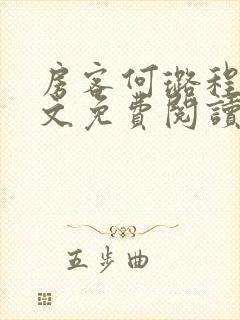 房客何璐程
文免費閱讀
五步曲